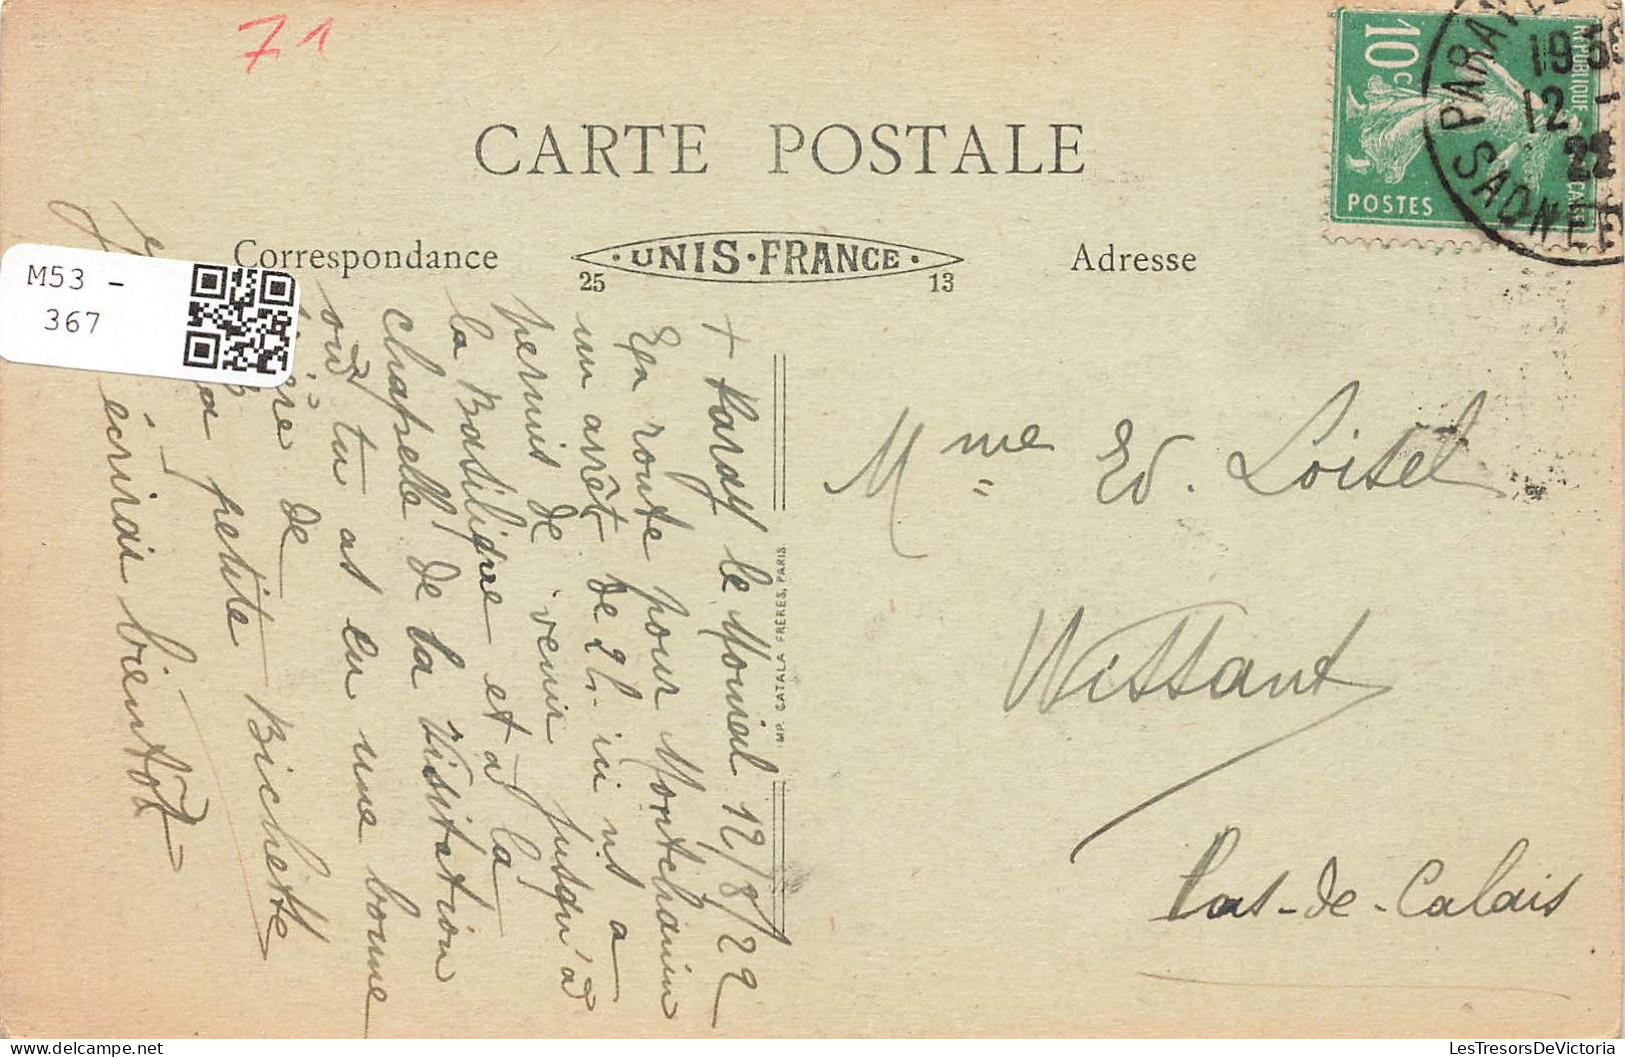 71
CARTE POSTALE
Correspondance
25 · UNIS · FRANCE · 13
Adresse
10 c
RÉPUBLIQUE
POSTES
PARAY
19
12 -
22
SAONE
M53 -
367
+ Paray le Monial 12/8/22
En route pour Montchanin
un arrêt de 2h. ici ns a
permis de venir jusqu'à
la Basilique et à la
chapelle de la Visitation
où tu as eu une bonne
de
petite Bichette
écrirai bientôt
IMP. CATALA FRÈRES, PARIS.
Mme Ed. Loisel
Wissant
Pas-de-Calais
LesTresorsDeVictoria